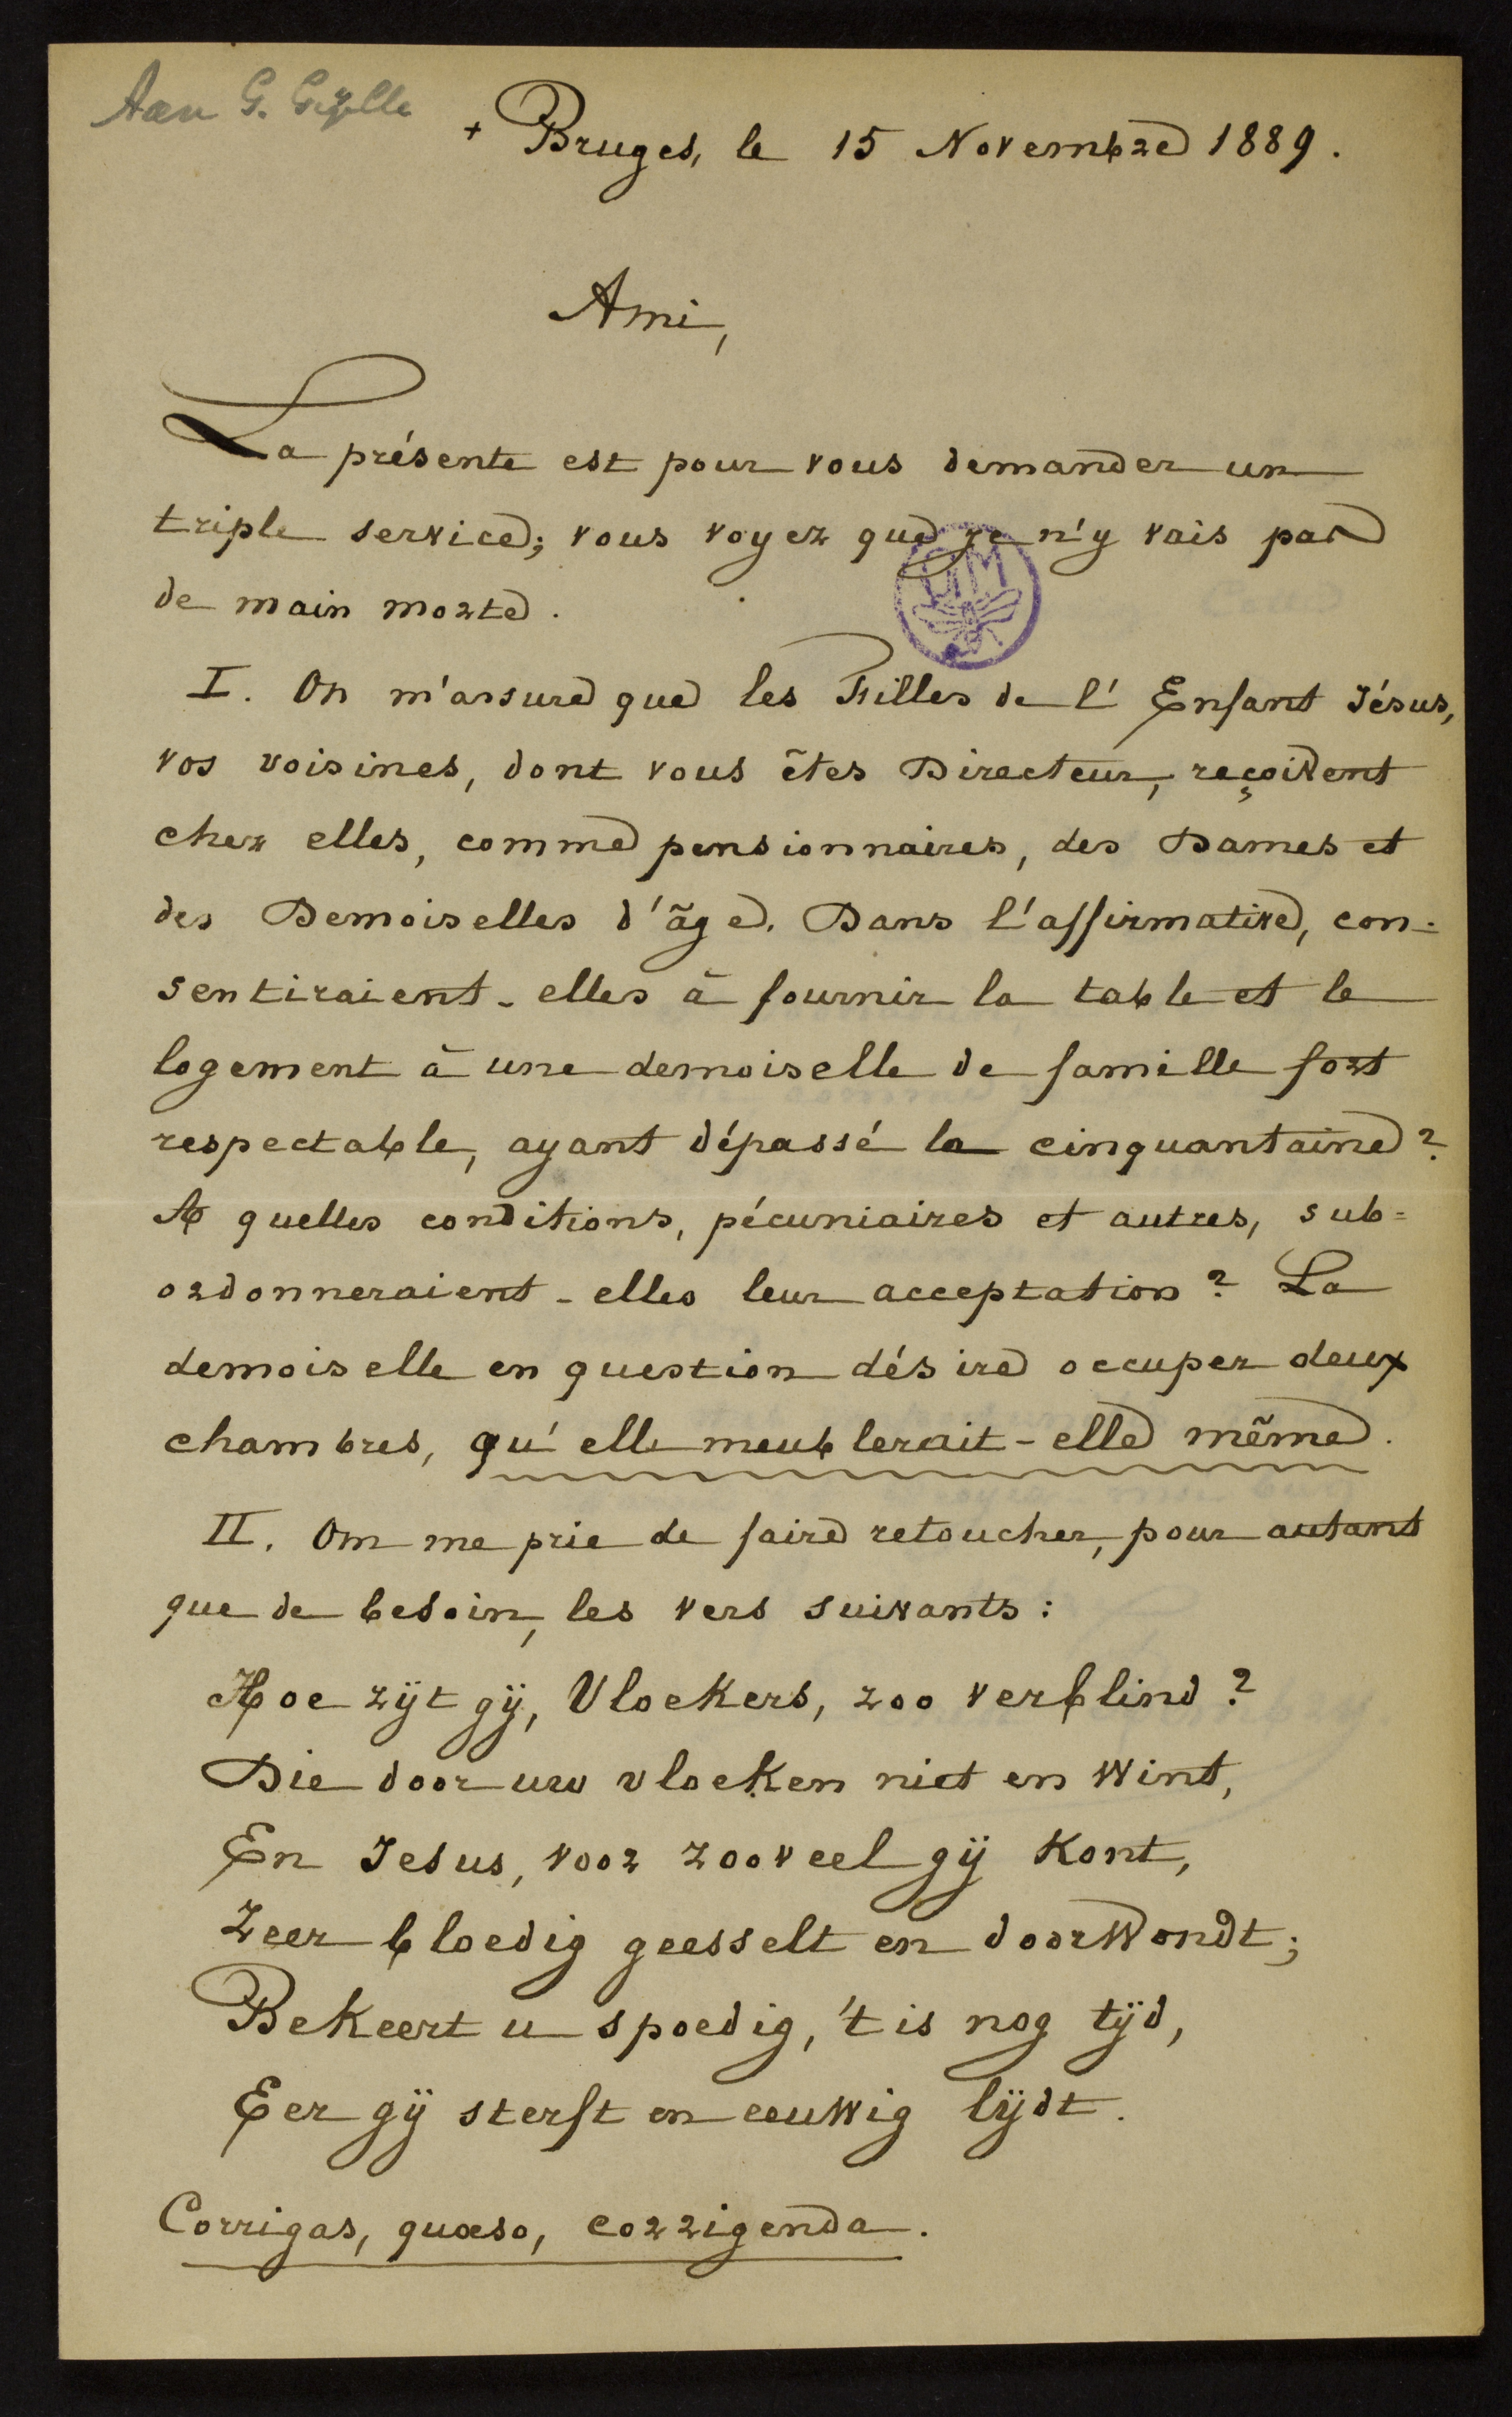 Aan G. Gezelle
+ Bruges, le 15 Novembre 1889.
Ami,
La présente est pour vous demander un
triple service; vous voyez que je n'y vais pas
de main morte.
GM
I. On m'assure que les Filles de l'Enfant Jésus,
vos voisines, dont vous êtes Directeur, reçoivent
chez elles, comme pensionnaires, des Dames et
des Demoiselles d'âge. Dans l'affirmative, con-
sentiraient-elles à fournir la table et le
logement à une demoiselle de famille fort
respectable, ayant dépassé la cinquantaine?
A quelles conditions, pécuniaires et autres, sub=
ordonneraient-elles leur acceptation? La
demoiselle en question désire occuper deux
chambres, qu'elle meublerait-elle même.
II. On me prie de faire retoucher, pour autant
que de besoin, les vers suivants:
Hoe zijt gij, Vloekers, zoo verblind?
Die door uw vloeken niet en wint,
En Jesus, voor zooveel gij kont,
Zeer bloedig geesselt en doorwondt;
Bekeert u spoedig, 't is nog tijd,
Eer gij sterft en eeuwig lijdt.
Corrigas, quæso, corrigenda.